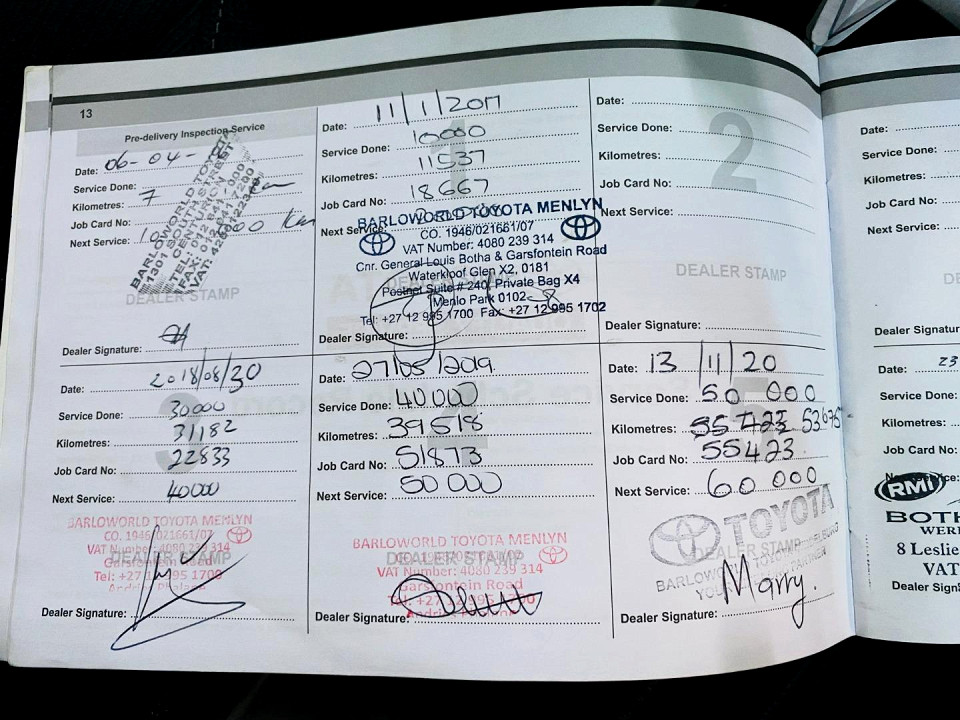 13
Pre-delivery Inspection Service
Date: 06-04-
Service Done:
Kilometres: 7 km
Job Card No:
Next Service: 10 000 km
BARLOWORLD TOYOTA
DEALER STAMP
Dealer Signature:
1
Date: 11/1/2017
Service Done: 10000
Kilometres: 11537
Job Card No: 18667
Next Service:
BARLOWORLD TOYOTA MENLYN
CO. 1946/021661/07
VAT Number: 4080 239 314
Cnr. General Louis Botha & Garsfontein Road
Waterkloof Glen X2, 0181
Postnet Suite # 240, Private Bag X4
Menlo Park 0102
Tel: +27 12 995 1700 Fax: +27 12 995 1702
Dealer Signature:
2
Date:
Service Done:
Kilometres:
Job Card No:
Next Service:
DEALER STAMP
Dealer Signature:
3
Date: 2018/08/30
Service Done: 30000
Kilometres: 31182
Job Card No: 22833
Next Service: 40000
BARLOWORLD TOYOTA MENLYN
CO. 1946/021661/07
VAT Number: 4080 239 314
DEALER STAMP
Garsfontein Road
Tel: +27 12 995 1700
Dealer Signature:
Date: 27/05/2019
Service Done: 40000
Kilometres: 39518
Job Card No: 51873
Next Service: 50 000
BARLOWORLD TOYOTA MENLYN
DEALER STAMP
VAT Number: 4080 239 314
Garsfontein Road
Tel: +27 12 995 1700
Dealer Signature:
5
Date: 13/11/20
Service Done: 50 000
Kilometres: 55 423 53675
Job Card No: 55423
Next Service: 60 000
TOYOTA
DEALER STAMP
BARLOWORLD
Marry.
Dealer Signature:
Date:
Service Done:
Kilometres:
Job Card No:
Next Service:
Dealer Signatur
Date: 23
Service Done:
Kilometres:
Job Card No:
RMI
BOTH
WER
8 Leslie
VAT
Dealer Sign